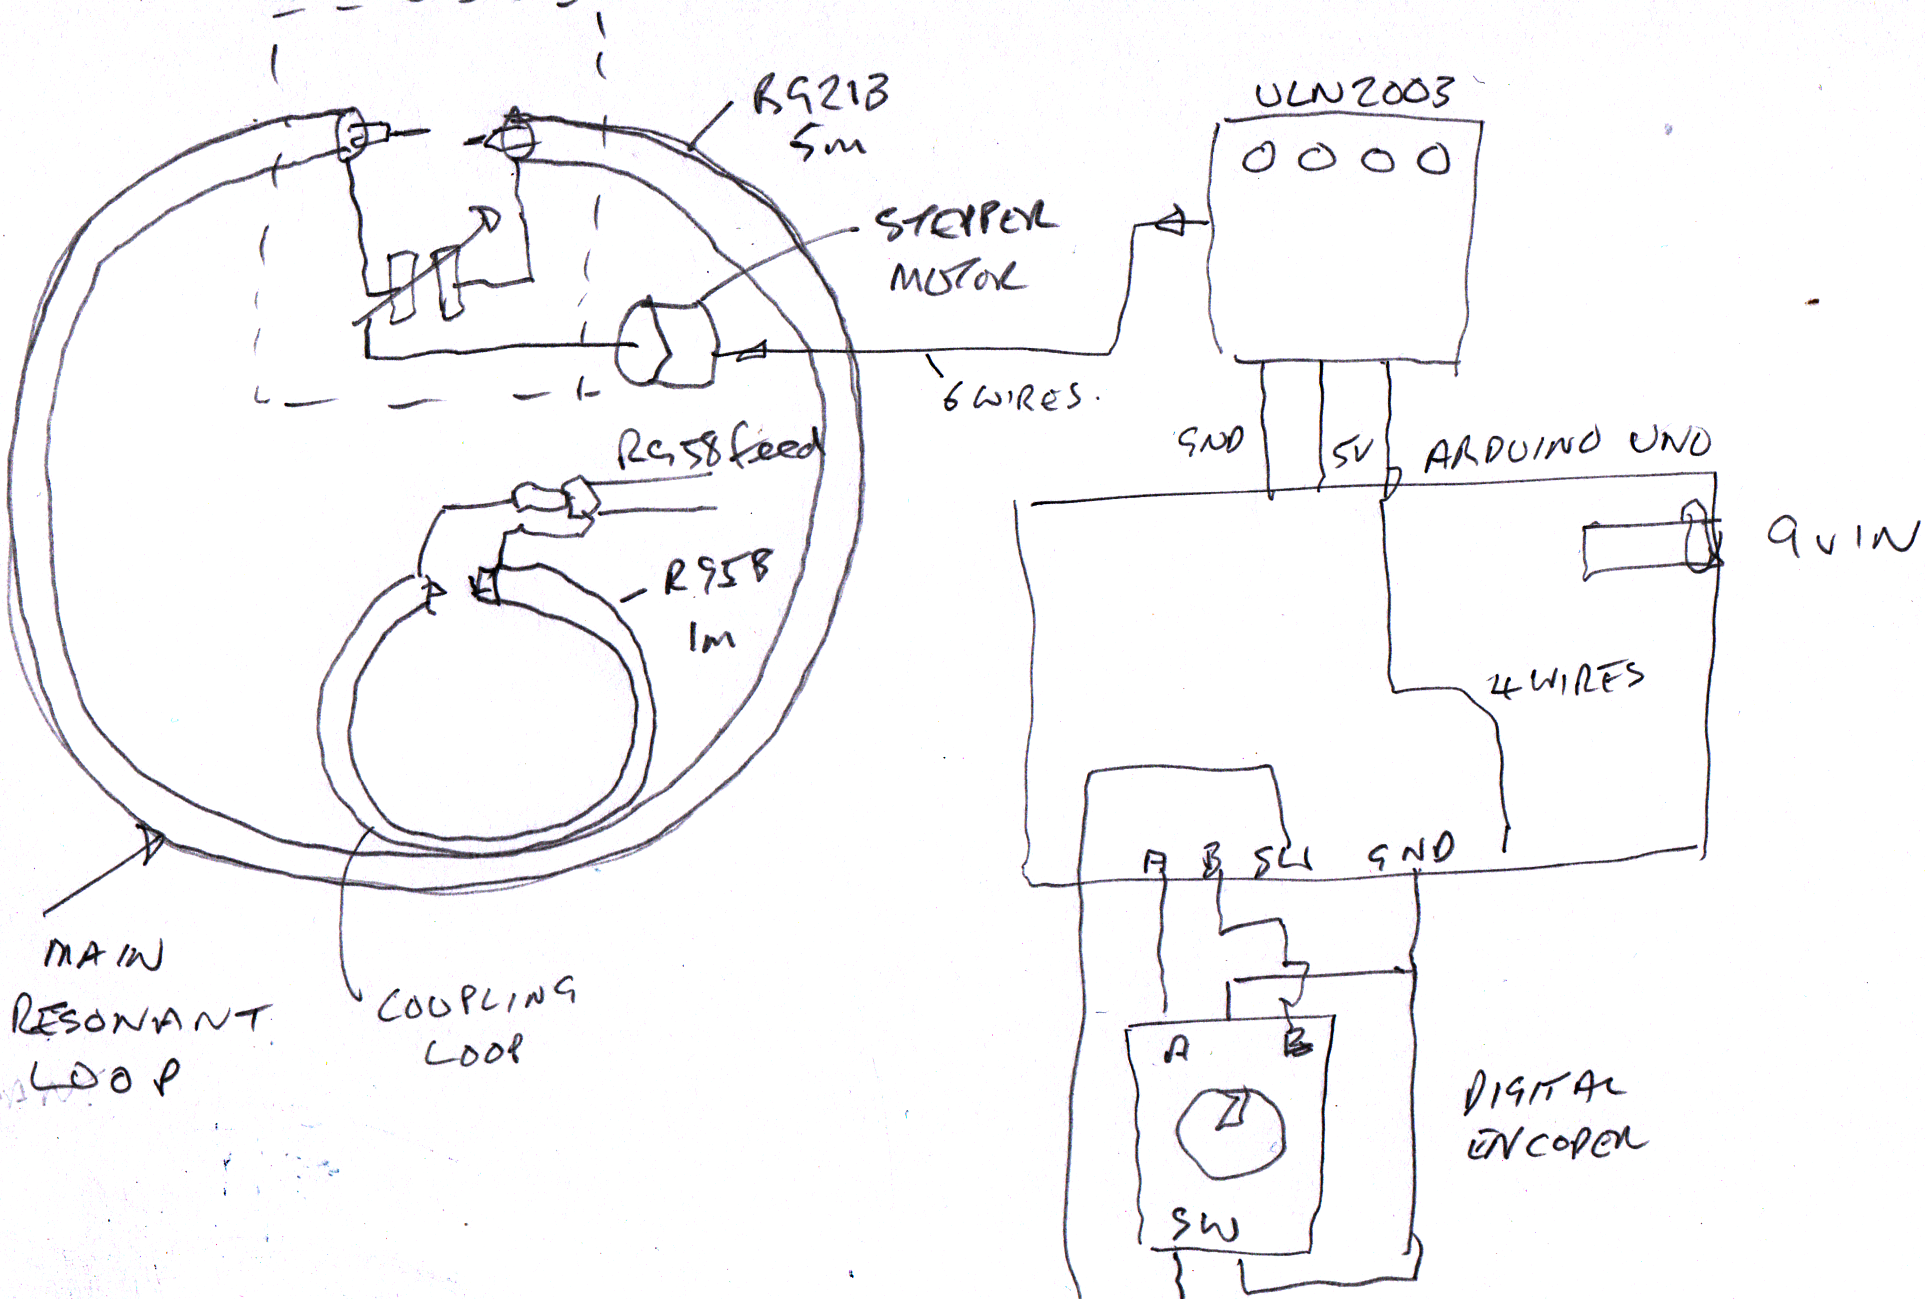 RG213
5m
STEPPER
MOTOR
ULN2003
6 WIRES.
GND
5V
ARDUINO UNO
9V IN
RG58 feed
RG58
1m
4 WIRES
A B SW GND
MAIN
RESONANT
LOOP
COUPLING
LOOP
A B
SW
DIGITAL
ENCODER